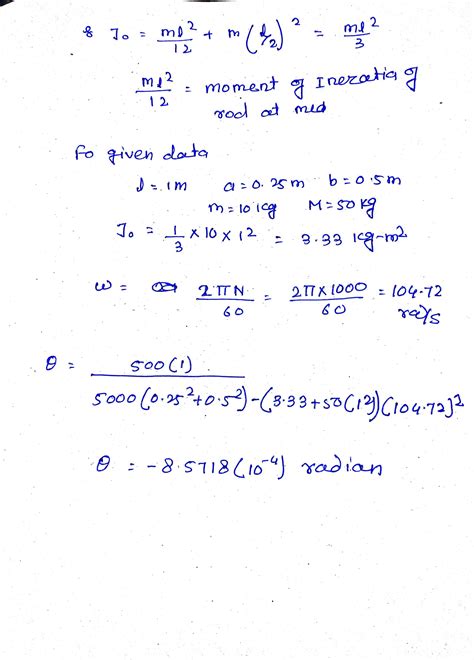 & J₀ = ml²/12 + m (l/2)² = ml²/3
ml²/12 = moment of Inezatia of
rod at med
fo given data
l = 1m a = 0.25m b = 0.5m
m = 10 kg M = 50 kg
J₀ = 1/3 × 10 × 1² = 3.33 kg-m²
ω = 2πN/60 = 2π×1000/60 = 104.72 ra/s
θ = 500(1) / 5000(0.25²+0.5²)-(3.33+50(1²))(104.72)²
θ = -8.5718(10⁻⁴) radian